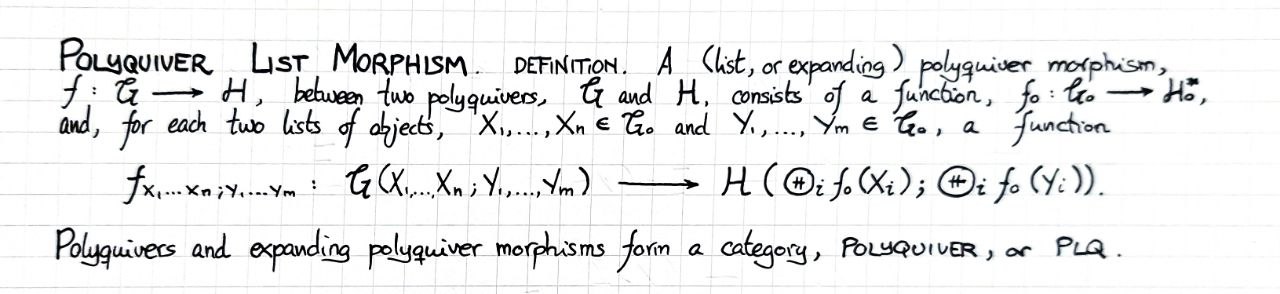 POLYQUIVER LIST MORPHISM. DEFINITION. A (list, or expanding) polyquiver morphism,
f : G ⟶ H, between two polyquivers, G and H, consists of a function, f₀ : G₀ ⟶ H₀*,
and, for each two lists of objects, X₁,..., Xn ∈ G₀ and Y₁,..., Ym ∈ G₀, a function
f X₁...Xn;Y₁...Ym : G(X₁,...,Xn ; Y₁,...,Ym) ⟶ H(⧺ᵢ f₀(Xᵢ); ⧺ᵢ f₀(Yᵢ)).
Polyquivers and expanding polyquiver morphisms form a category, POLYQUIVER, or PLQ.